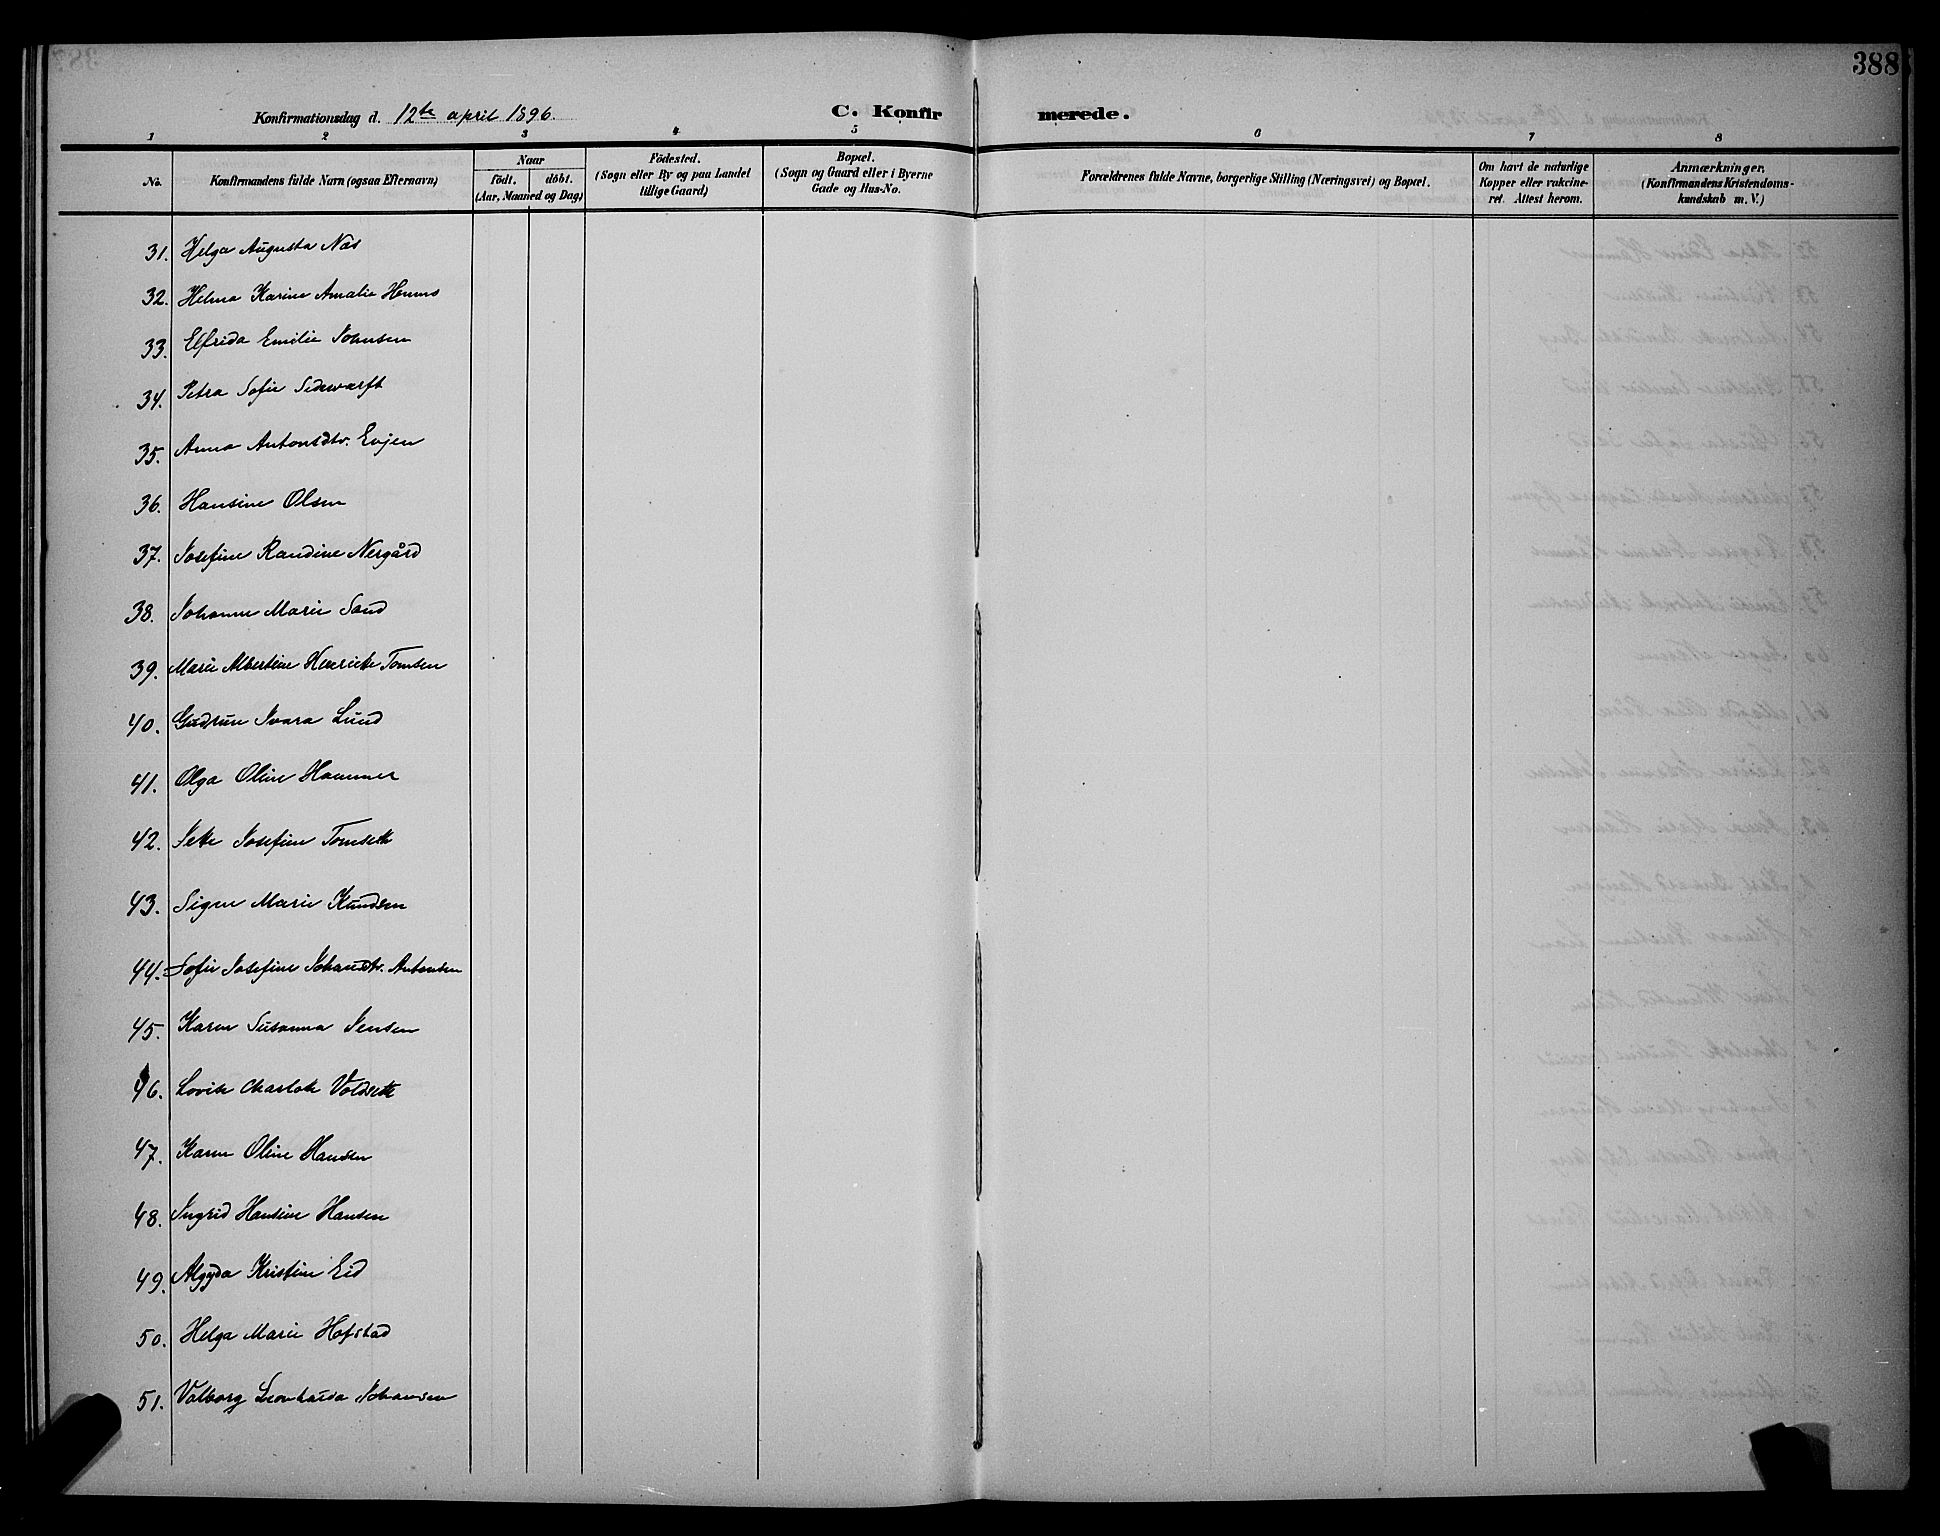 388
Konfirmationsdag d. 12te april 1896.
C. Konfirmerede.
1 2 3 4 5 6 7 8
No.
Konfirmandens fulde Navn (ogsaa Efternavn)
Naar
födt. döbt.
(Aar, Maaned og Dag)
Födested.
(Sogn eller By og paa Landet
tillige Gaard)
Bopæl.
(Sogn og Gaard eller i Byerne
Gade og Hus-No.
Forældrenes fulde Navne, borgerlige Stilling (Næringsvei) og Bopæl.
Om havt de naturlige
Kopper eller vakcine-
ret. Attest herom.
Anmærkninger.
(Konfirmandens Kristendoms-
kundskab m. V.)
31. Helga Augusta Næs
32. Helma Karine Amalie Hemms
33. Elfrida Emilie Johnsen
34. Petra Sofie
35. Anna Antonsdtr. Evjen
36. Hansine Olsen
37. Josefine Randine Nergård
38. Johanne Marie Sand
39. Marie Albertine Henriette Tomsen
40. Gudrun Svara Lund
41. Olga Oline Hammer
42. Jette Josefine Tomseth
43. Signe Marie Knudsen
44. Sofie Josefine Johansdtr. Antonsen
45. Karen Susanna Jensen
46. Lovise Charlotte Voldseth
47. Karen Oline Hansen
48. Ingrid Hansine Hansen
49. Algyda Kristine Eid
50. Helga Marie Hofstad
51. Valborg Leonharda Johansen